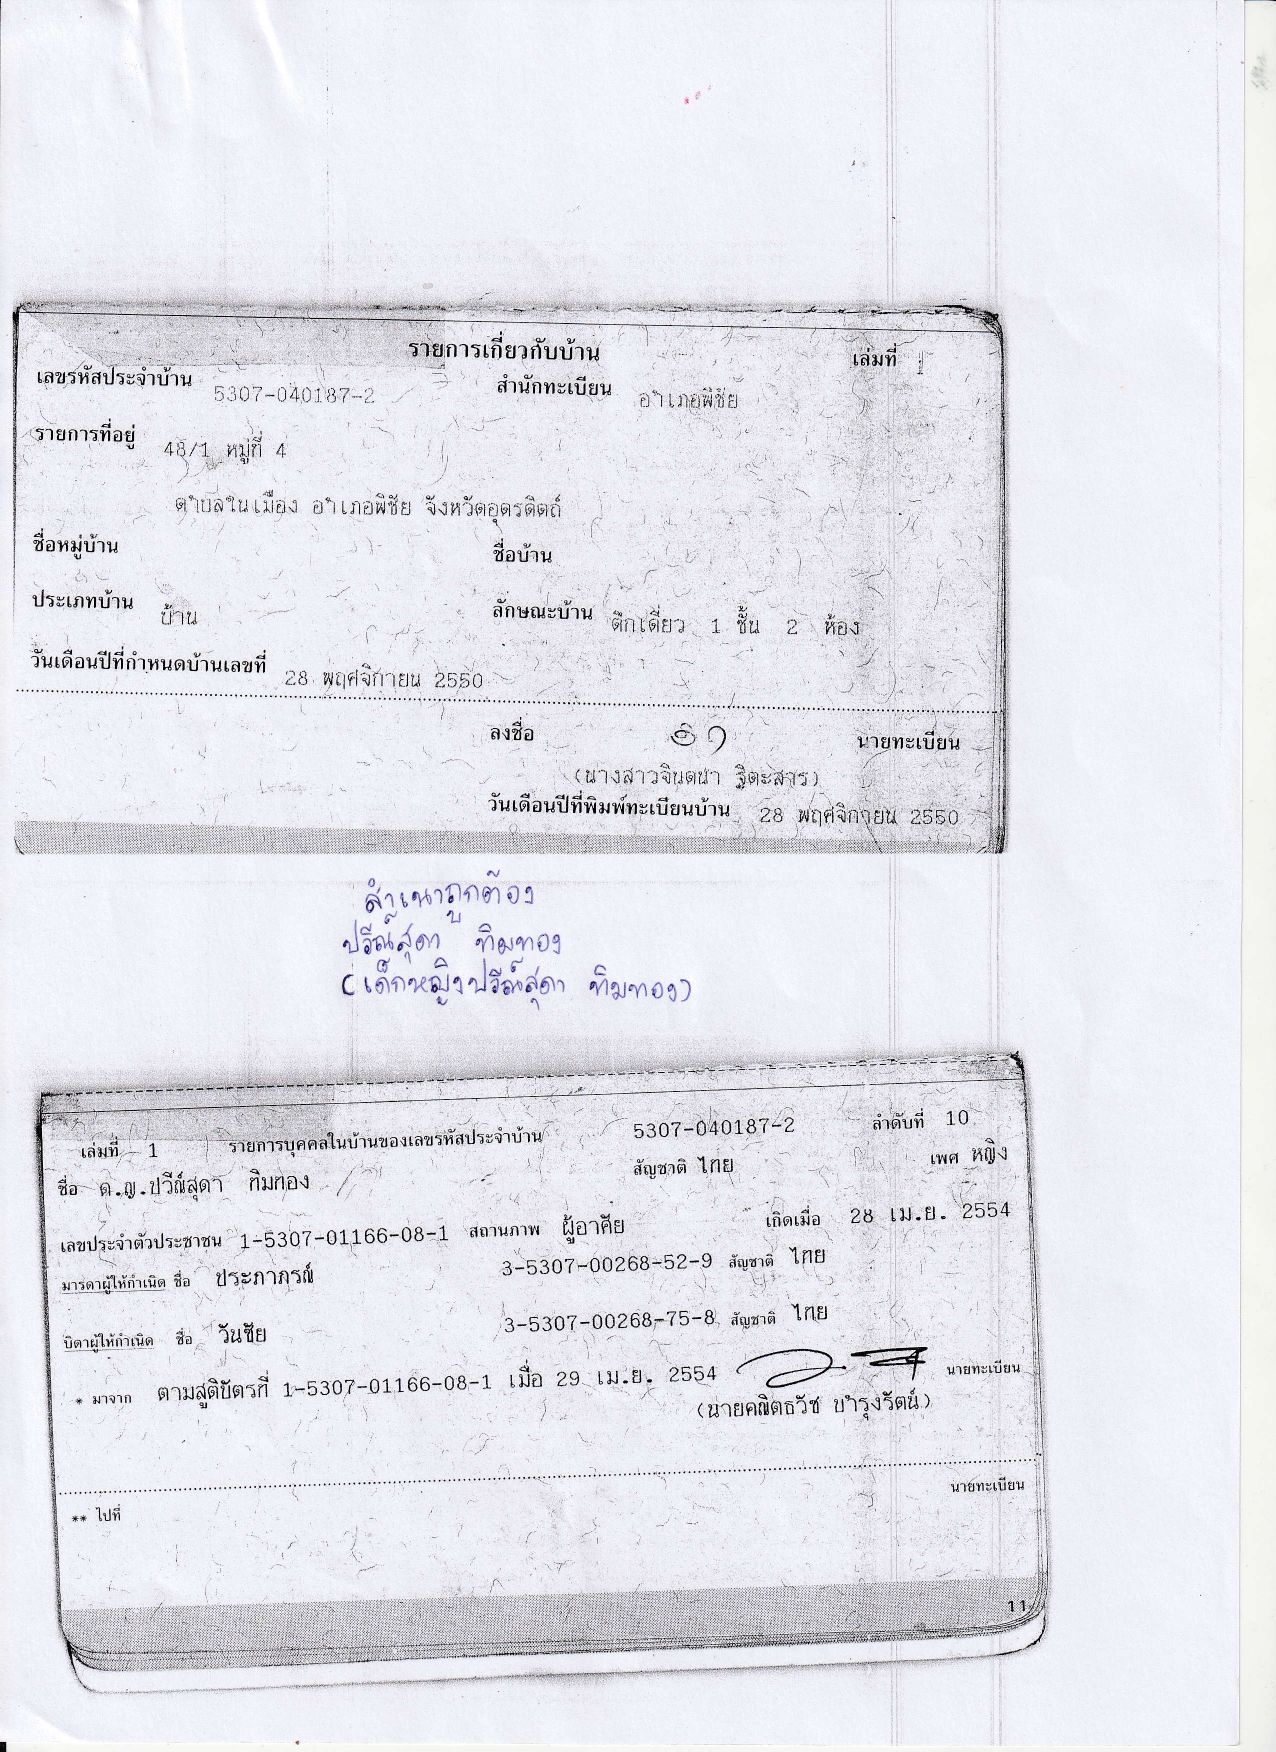 รายการเกี่ยวกับบ้าน เล่มที่ 1
เลขรหัสประจำบ้าน 5307-040187-2 สำนักทะเบียน อำเภอพิชัย
รายการที่อยู่ 48/1 หมู่ที่ 4
ตำบลในเมือง อำเภอพิชัย จังหวัดอุตรดิตถ์
ชื่อหมู่บ้าน ชื่อบ้าน
ประเภทบ้าน บ้าน ลักษณะบ้าน ตึกเดี่ยว 1 ชั้น 2 ห้อง
วันเดือนปีที่กำหนดบ้านเลขที่ 28 พฤศจิกายน 2550
ลงชื่อ นายทะเบียน
(นางสาวจินตนา ฐิตะสาร)
วันเดือนปีที่พิมพ์ทะเบียนบ้าน 28 พฤศจิกายน 2550
สำเนาถูกต้อง
ปวีณ์สุดา ทิมทอง
(เด็กหญิงปวีณ์สุดา ทิมทอง)
เล่มที่ 1 รายการบุคคลในบ้านของเลขรหัสประจำบ้าน 5307-040187-2 ลำดับที่ 10
ชื่อ ด.ญ.ปวีณ์สุดา ทิมทอง สัญชาติ ไทย เพศ หญิง
เลขประจำตัวประชาชน 1-5307-01166-08-1 สถานภาพ ผู้อาศัย เกิดเมื่อ 28 เม.ย. 2554
มารดาผู้ให้กำเนิด ชื่อ ประภาภรณ์ 3-5307-00268-52-9 สัญชาติ ไทย
บิดาผู้ให้กำเนิด ชื่อ วันชัย 3-5307-00268-75-8 สัญชาติ ไทย
* มาจาก ตามสูติบัตรที่ 1-5307-01166-08-1 เมื่อ 29 เม.ย. 2554 นายทะเบียน
(นายคณิตธวัช บำรุงรัตน์)
** ไปที่ นายทะเบียน
11